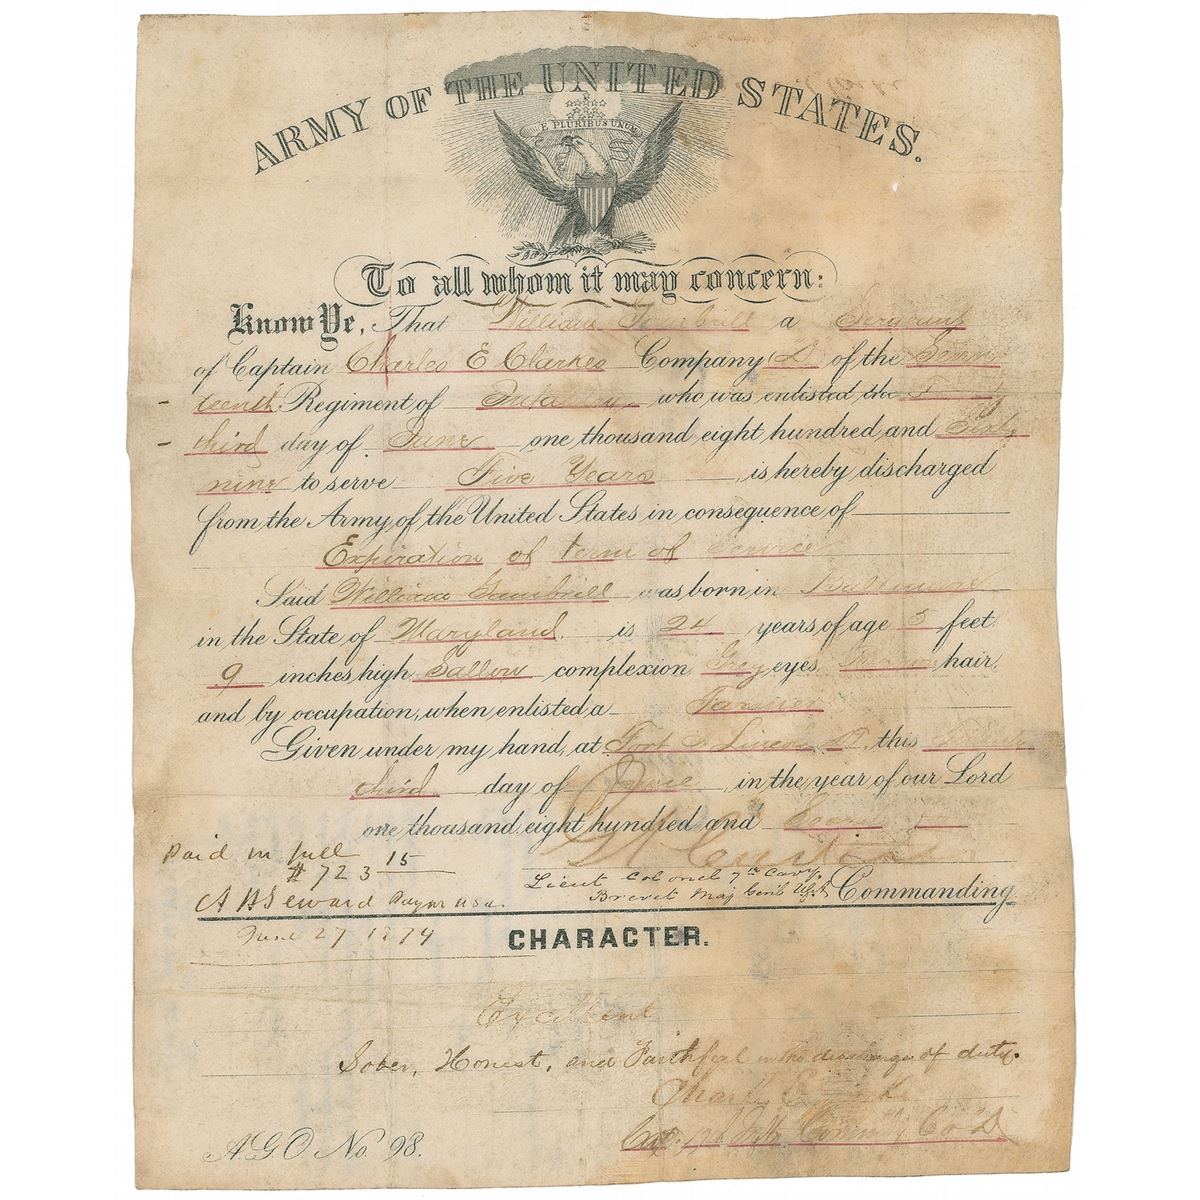 ARMY OF THE UNITED STATES.
E PLURIBUS UNUM
To all whom it may concern:
Know Ye, That William Gambrill a Sergeant
of Captain Charles E Clarkes Company D of the Seven
teenth Regiment of Infantry who was enlisted the
third day of June one thousand eight hundred and Sixty
nine to serve Five Years is hereby discharged
from the Army of the United States in consequence of
Expiration of term of service
Said William Gambrill was born in Baltimore
in the State of Maryland is 24 years of age 5 feet
9 inches high Sallow complexion Grey eyes Brown hair,
and by occupation, when enlisted a Farmer
Given under my hand, at Fort A. Lincoln DT, this Twenty
third day of June in the year of our Lord
one thousand eight hundred and Seventy four
Paid in full
$723 15
A B Seward Paymr USA.
June 27 1874
G A Custer
Lieut Colonel 7th Cavy,
Brevet Maj Genl USA Commanding
CHARACTER.
Excellent
Sober, Honest, and Faithful in the discharge of duty.
Charles E Clarke
Capt. 17th Infty Comndg Co "D"
A.G.O. No. 98.